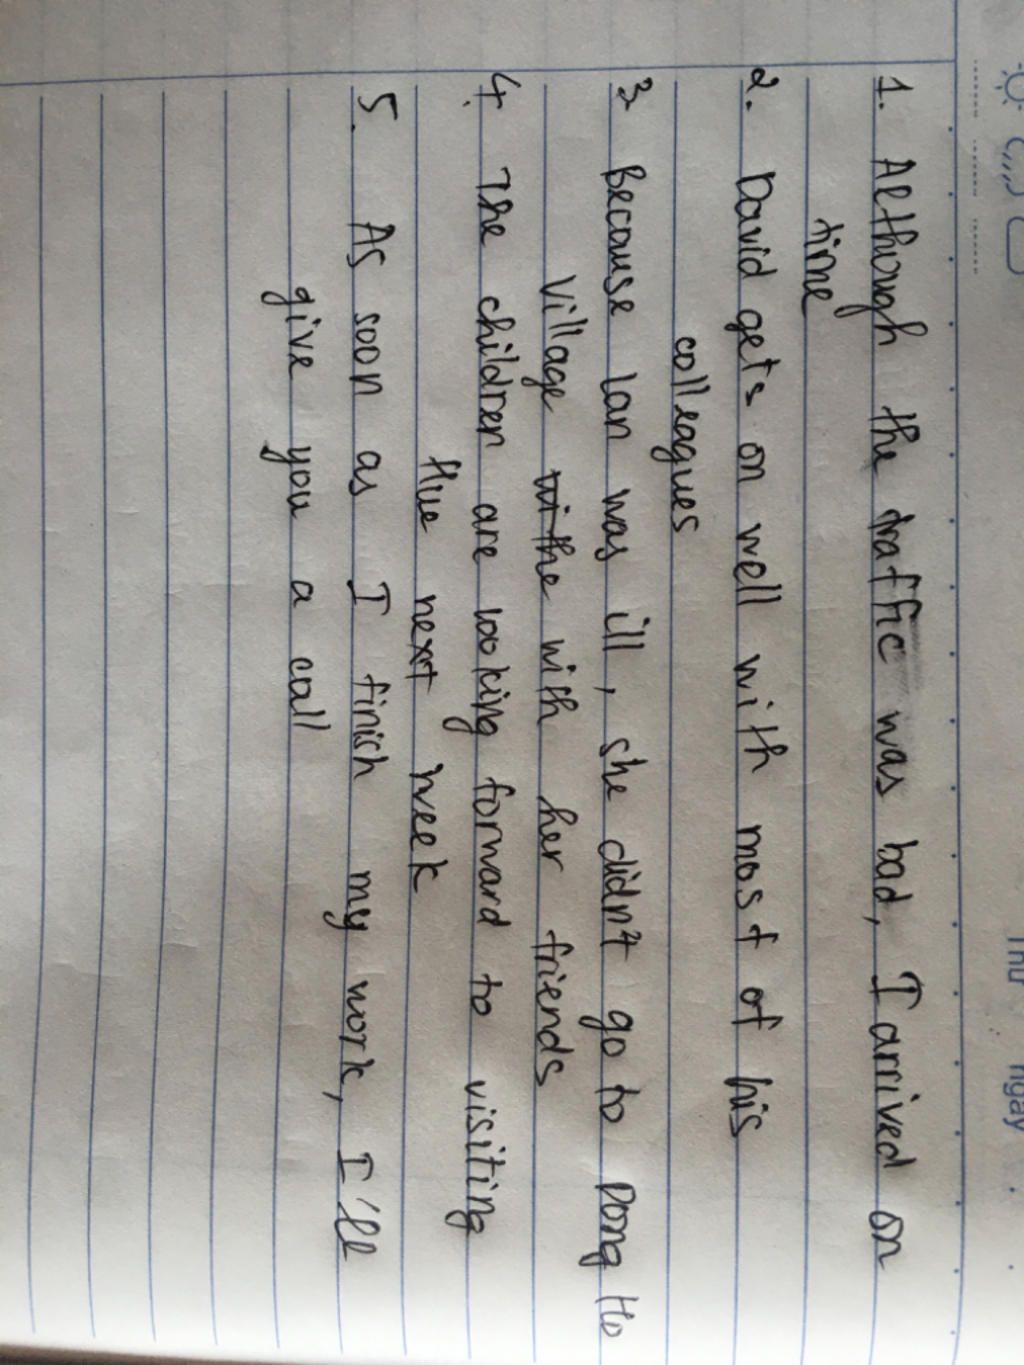 Thứ ngày
1. Although the traffic was bad, I arrived on
time
2. David gets on well with most of his
colleagues
3 Because lan was ill, she didn't go to Dong Ho
Village withe with her friends
4. The children are looking forward to visiting
Hue next week
5. As soon as I finish my work, I'll
give you a call